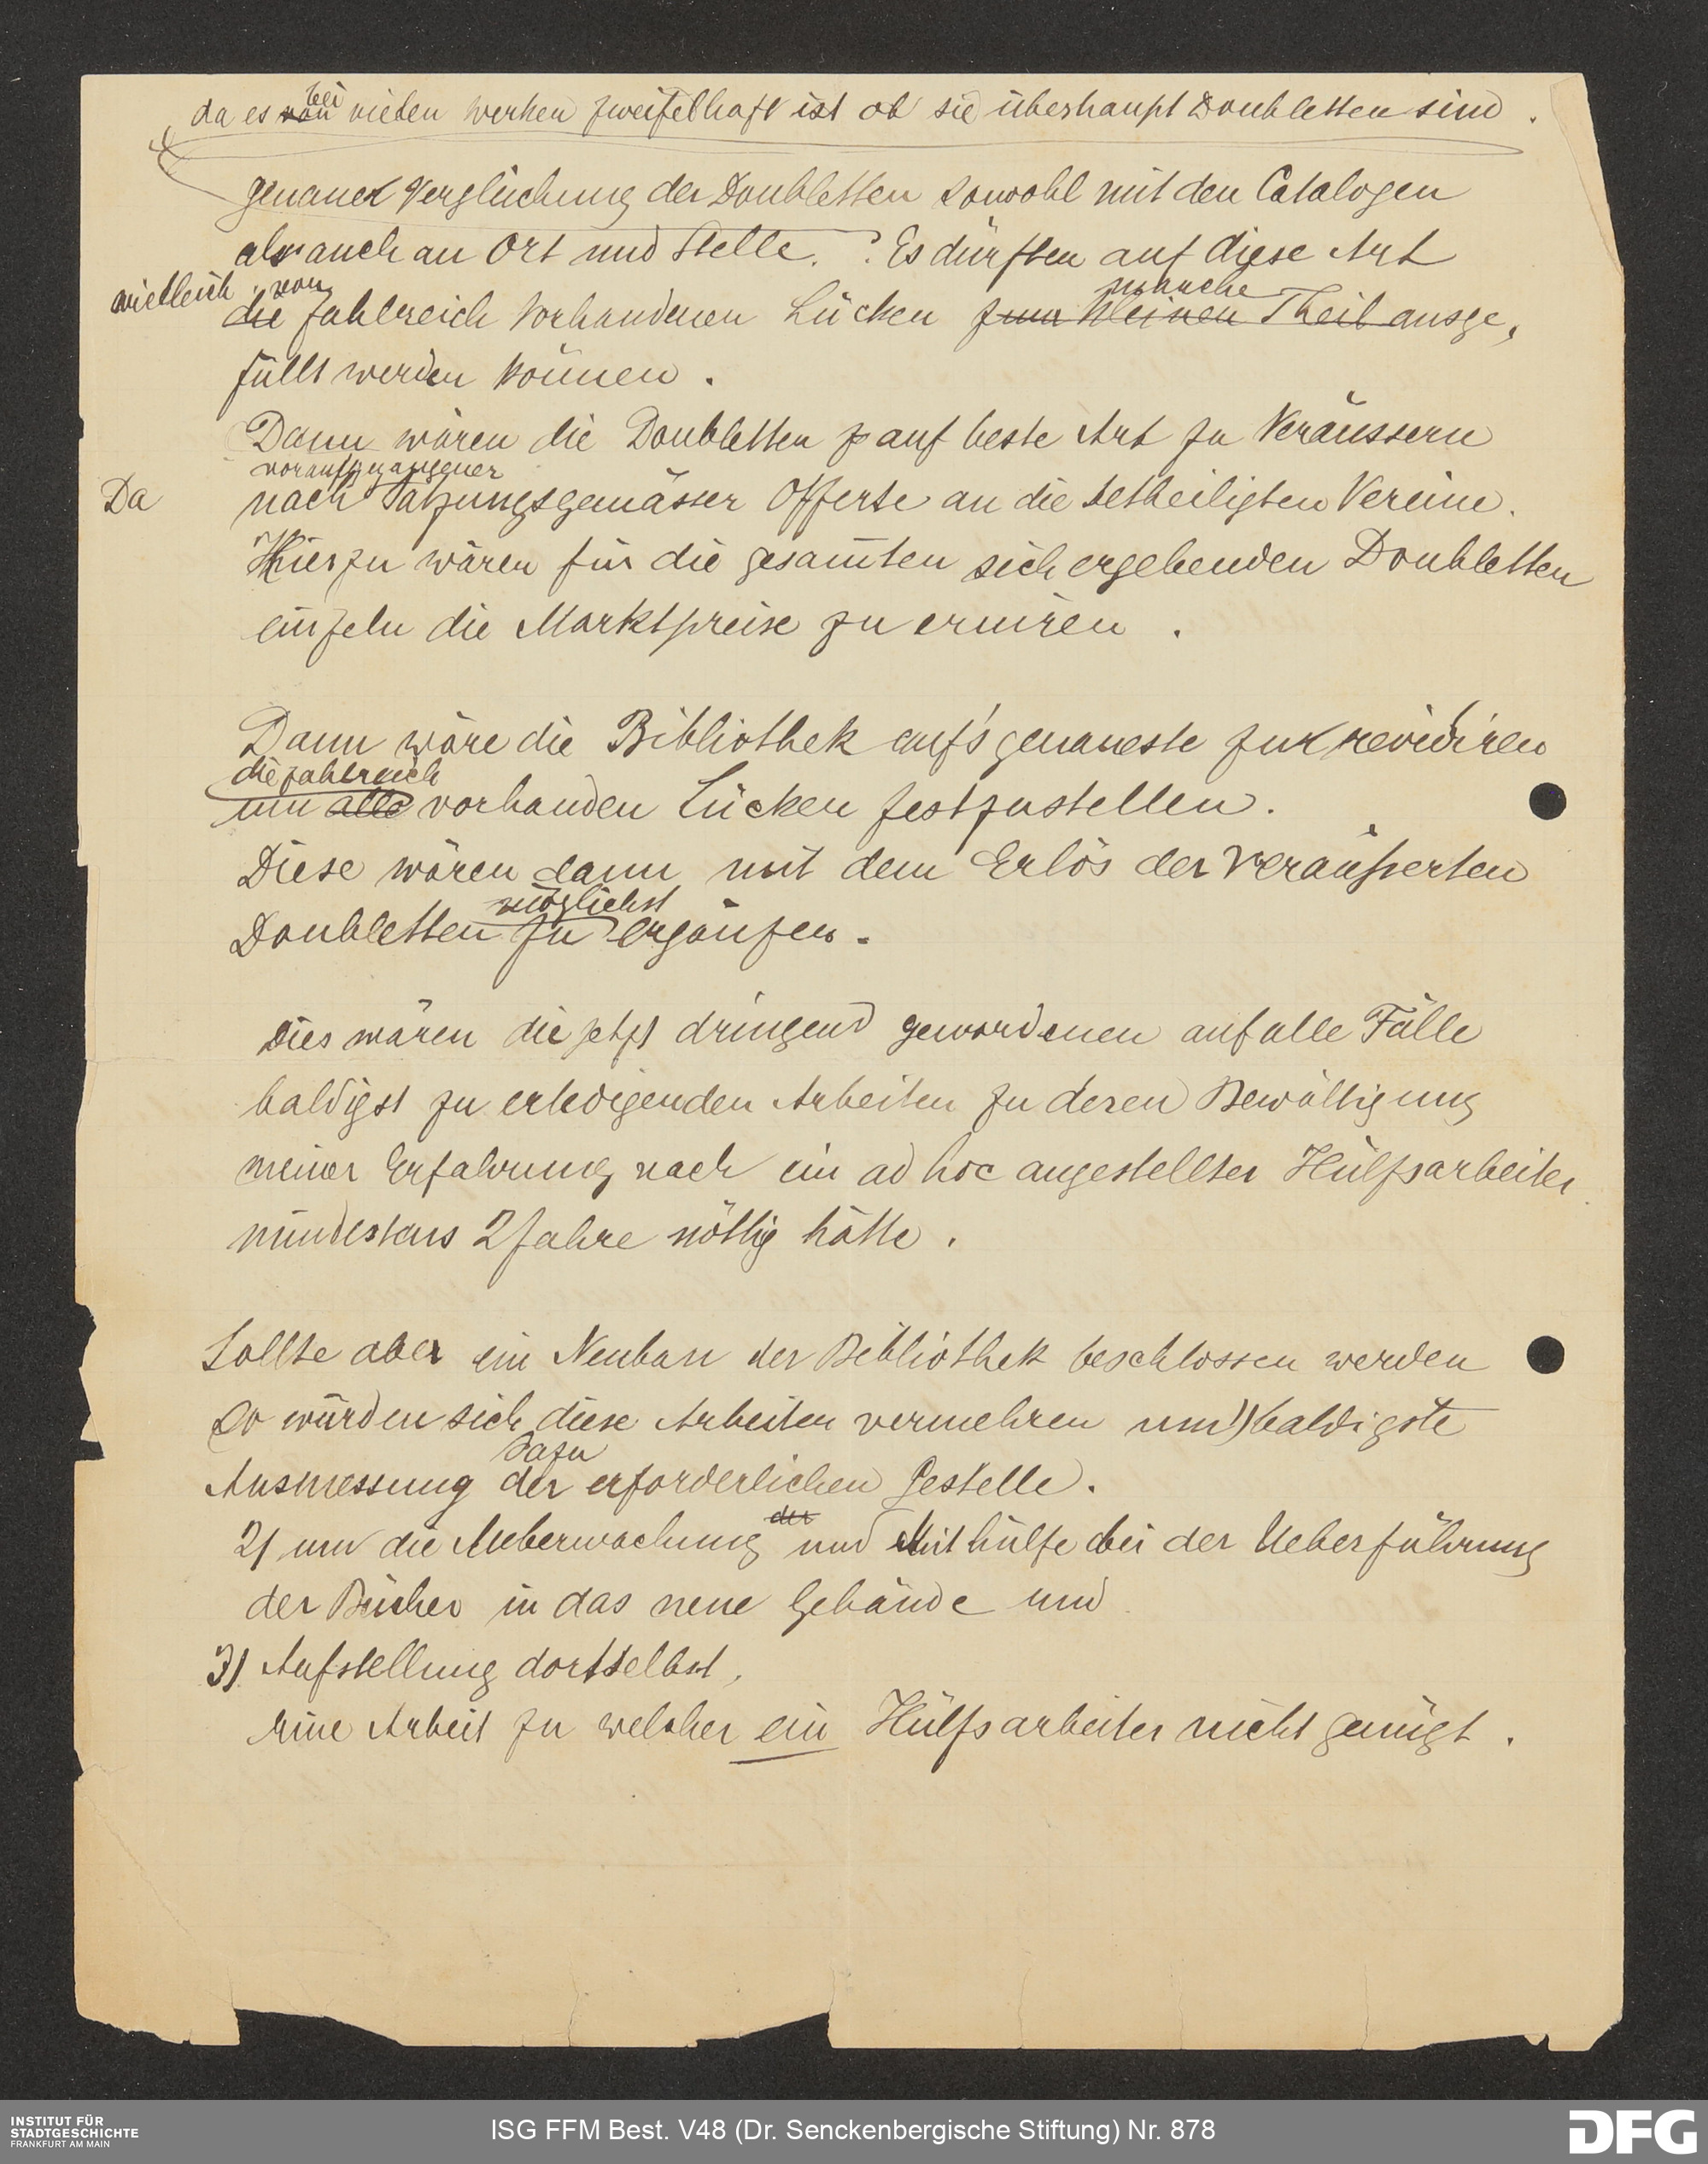 da es von bei vielen Werken zweifelhaft ist ob sie überhaupt Doubletten sind.
genauer Vergleichung der Doubletten sowohl mit den Catalogen
als auch an Ort und Stelle. Es dürften auf diese Art
von manche
die zahlreich vorhandenen Lücken zum kleinen Theil ausge,
füllt werden können.
Dann wären die Doubletten auf beste Art zu veräussern
voraufgegangener
Da nach Satzungsgemässer Offerte an die betheiligten Vereine.
Hierzu wären für die gesam̄ten sich ergebenden Doubletten
einzeln die Marktpreise zu eruiren.
Dann wäre die Bibliothek auf's genaueste zu revidiren
die zahlreich
um alle vorhanden Lücken festzustellen.
Diese wären dann mit dem Erlös der veräusserten
möglichst
Doubletten zu ergänzen.
Dies wären die jetzt dringend gewordenen auf alle Fälle
baldigst zu erledigenden Arbeiten zu deren Bewältigung
meiner Erfahrung nach ein ad hoc angestellter Hülfsarbeiter
mindestens 2 Jahre nöthig hätte.
Sollte aber ein Neubau der Bibliothek beschlossen werden
so würden sich diese Arbeiten vermehren um 1) baldigste
dazu
Ausmessung der erforderlichen Gestelle.
der
2) um die Ueberwachung und Mithülfe bei der Ueberführung
der Bücher in das neue Gebäude und
3) Aufstellung dortselbst,
eine Arbeit zu welcher ein Hülfsarbeiter nicht genügt.
INSTITUT FÜR
STADTGESCHICHTE
FRANKFURT AM MAIN
ISG FFM Best. V48 (Dr. Senckenbergische Stiftung) Nr. 878
DFG